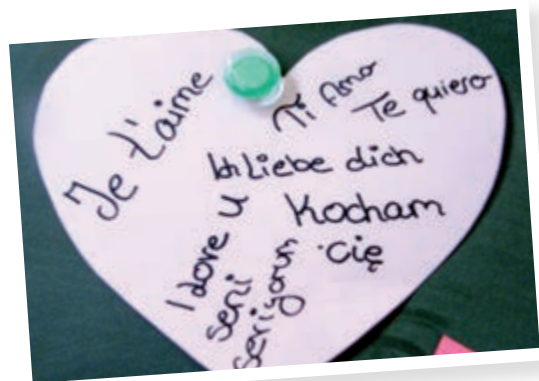 Je t'aime
Ti Amo
Te quiero
Ich Liebe dich
Kocham
cię
I love u
seni
seviyorum